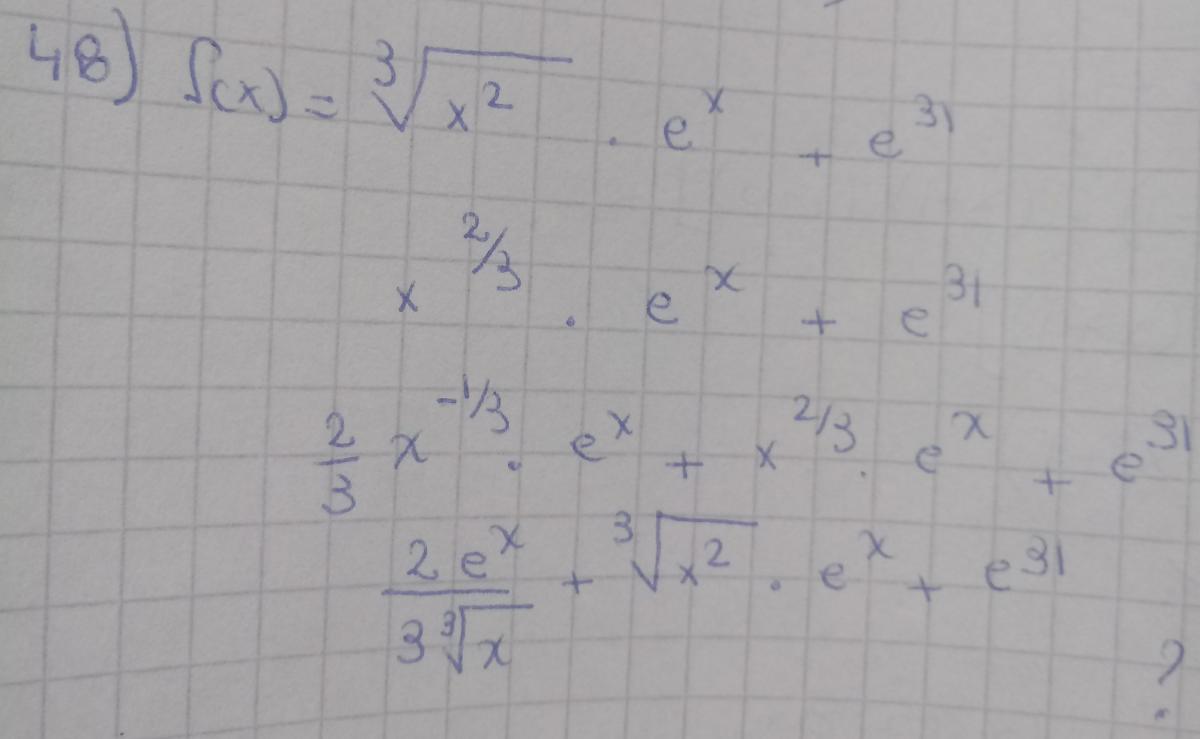 48) f(x) = ∛x² · eˣ + e³¹
x^2/3 · eˣ + e³¹
2/3 x^-1/3 · eˣ + x^2/3 · eˣ + e³¹
2eˣ/3∛x + ∛x² · eˣ + e³¹
?